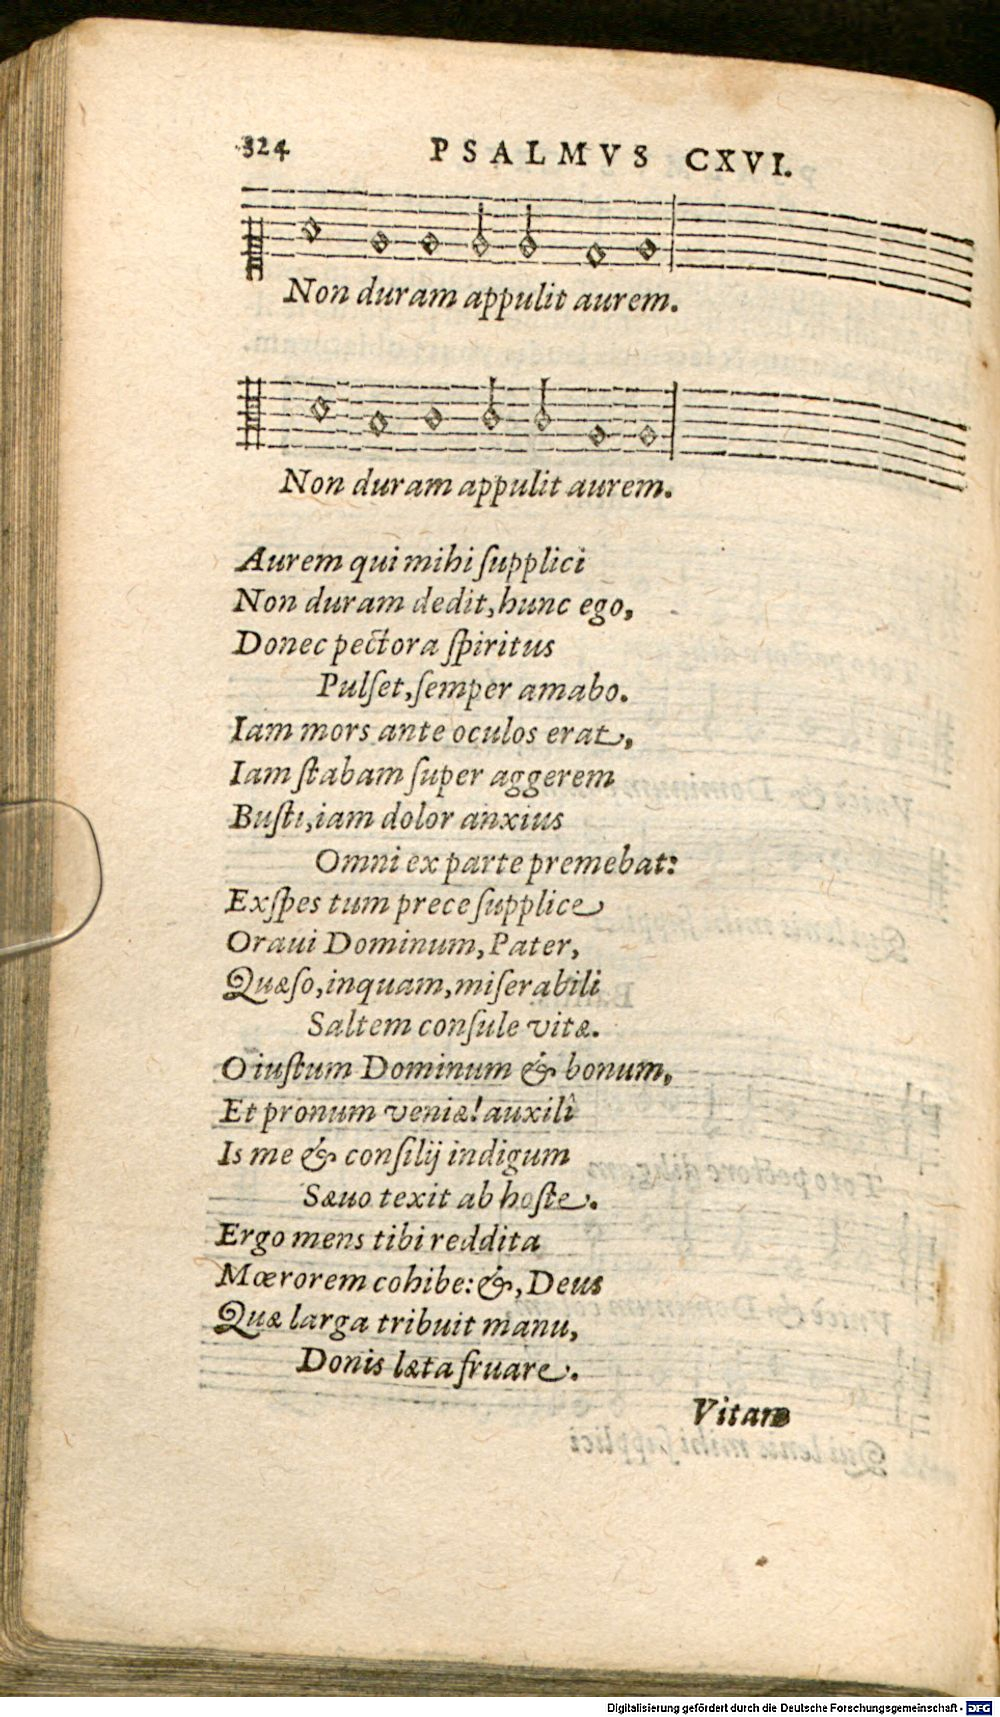 324 PSALMVS CXVI.
Non duram appulit aurem.
Non duram appulit aurem.
Aurem qui mihi ſupplici
Non duram dedit, hunc ego,
Donec pectora ſpiritus
Pulſet, ſemper amabo.
Iam mors ante oculos erat,
Iam ſtabam ſuper aggerem
Buſti, iam dolor anxius
Omni ex parte premebat:
Exſpes tum prece ſupplice
Oraui Dominum, Pater,
Quæſo, inquam, miſerabili
Saltem conſule vitæ.
O iuſtum Dominum & bonum,
Et pronum veniæ! auxilî
Is me & conſilij indigum
Sæuo texit ab hoſte.
Ergo mens tibi reddita
Mœrorem cohibe: &, Deus
Quæ larga tribuit manu,
Donis læta fruare.
Vitam
Digitalisierung gefördert durch die Deutsche Forschungsgemeinschaft - DFG